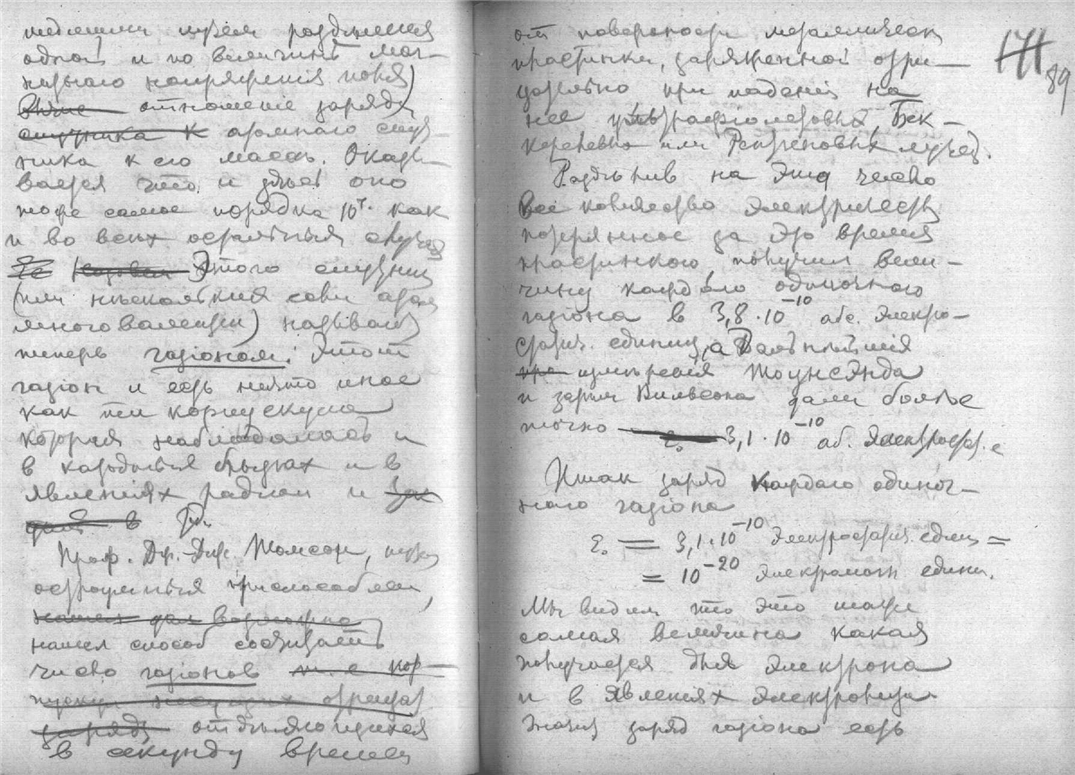 одной и по величинѣ маг-
нитнаго напряженія поля)
отношение заряда
спутника к атомнаго спут-
ника к его массѣ. Оказы-
вается что и здѣсь оно
тоже самое порядка 10⁷ как
и во всѣх остальных случаях
Этого спутника
(или нѣскольких сови
много валенции) называют
теперь гатіоном. Этот
гатіон и есть нѣчто иное
как та корпускула
которая наблюдалась и
в катодных лучах и в
явленіях радия и
в
Проф. Дж. Дж. Томсон, путем
остроумных приспособлен,
нашел способ сосчитать
число гатіонов т. е. кор-
пускул несущих отрицат
заряд отдѣляющихся
в секунду времени
171
89
от поверхности металлическ
пластинки, заряженной отри-
цательно при падении на
нее ультрафіолетовых, Бек-
керелевых или Рентгеновых лучей.
Раздѣлив на это число
все количество электричества
потерянное за это время
пластинкою, получил вели-
чину каждаго одиночнаго
гатіона в 3,8·10⁻¹⁰ абс. электро-
статич. единиц, а Дальнѣйшія
измѣренія Тоунсэнда
и затѣм Вильсона дали болѣе
точно 3,1·10⁻¹⁰ аб. электростат. е
Итак заряд каждаго одиноч-
наго гатіона
= 3,1·10⁻¹⁰ электростатич. един =
= 10⁻²⁰ электромагн едини.
Мы видим что это таже
самая величина какая
получается для электрона
и в явленіях электролиза
Значит заряд гатіона есть